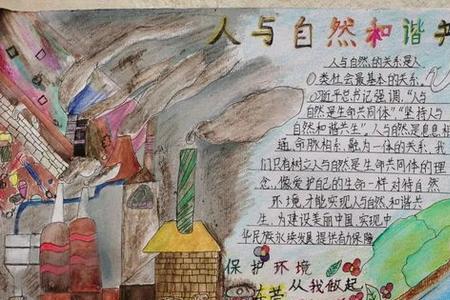 人与自然和谐共
人与自然的关系是人
类社会最基本的关系
习近平总书记强调,“人与
自然是生命共同体”“坚持人与
自然和谐共生”人与自然是息息相
通、命脉相系、融为一体的关系,我
们只有树立人与自然是生命共同体的理
念,像爱护自己的生命一样对待自然
环境,才能实现人与自然和谐共
生,为建设美丽中国、实现中
华民族永续发展提供有力保障
保护环境
从我做起